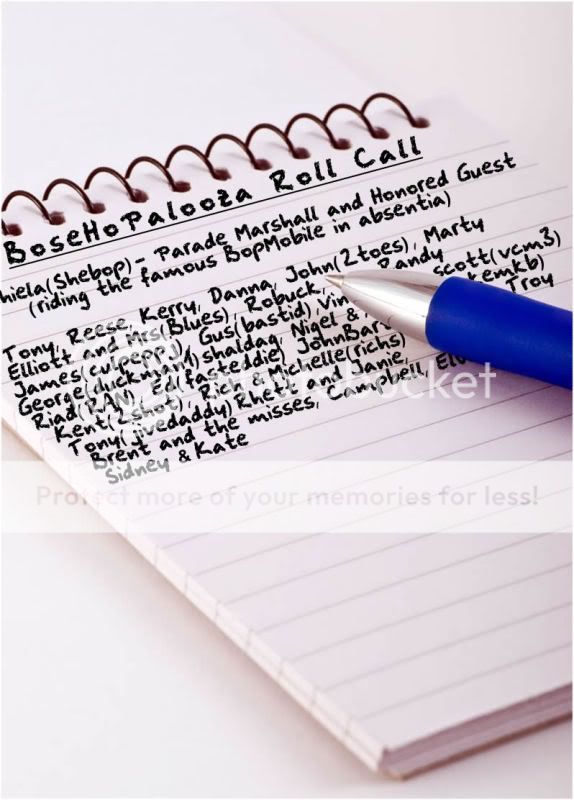 BoseHoPalooza Roll Call
hiela(Shebop) - Parade Marshall and Honored Guest
(riding the famous BopMobile in absentia)
Tony, Reese, Kerry, Danna, John(2toes), Marty
Elliott and Mrs(Blues), Robuck, Randy
James(culpepp), Gus(bastid), scott(vcm3)
shaldag, Nigel &
Ed(fasteddie) Troy
Kent(2shot), Michelle(richs)
Tony(jivedaddy) and Janie,
Brent and the misses, Campbell,
Sidney & Kate
photobucket
Protect more of your memories for less!